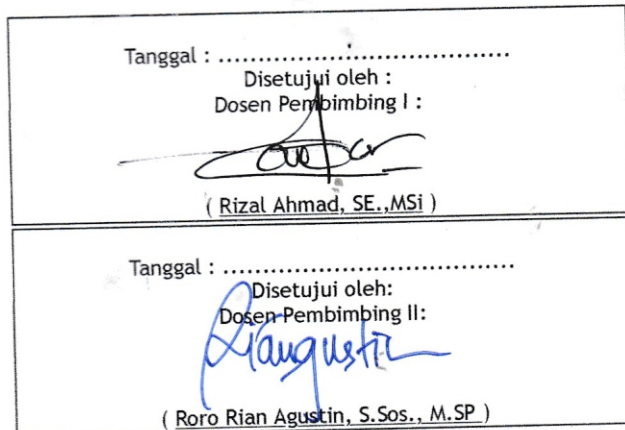 Tanggal : ......................................
Disetujui oleh :
Dosen Pembimbing I :
( Rizal Ahmad, SE.,MSi )
Tanggal : ......................................
Disetujui oleh:
Dosen Pembimbing II:
Riangustin
( Roro Rian Agustin, S.Sos., M.SP )